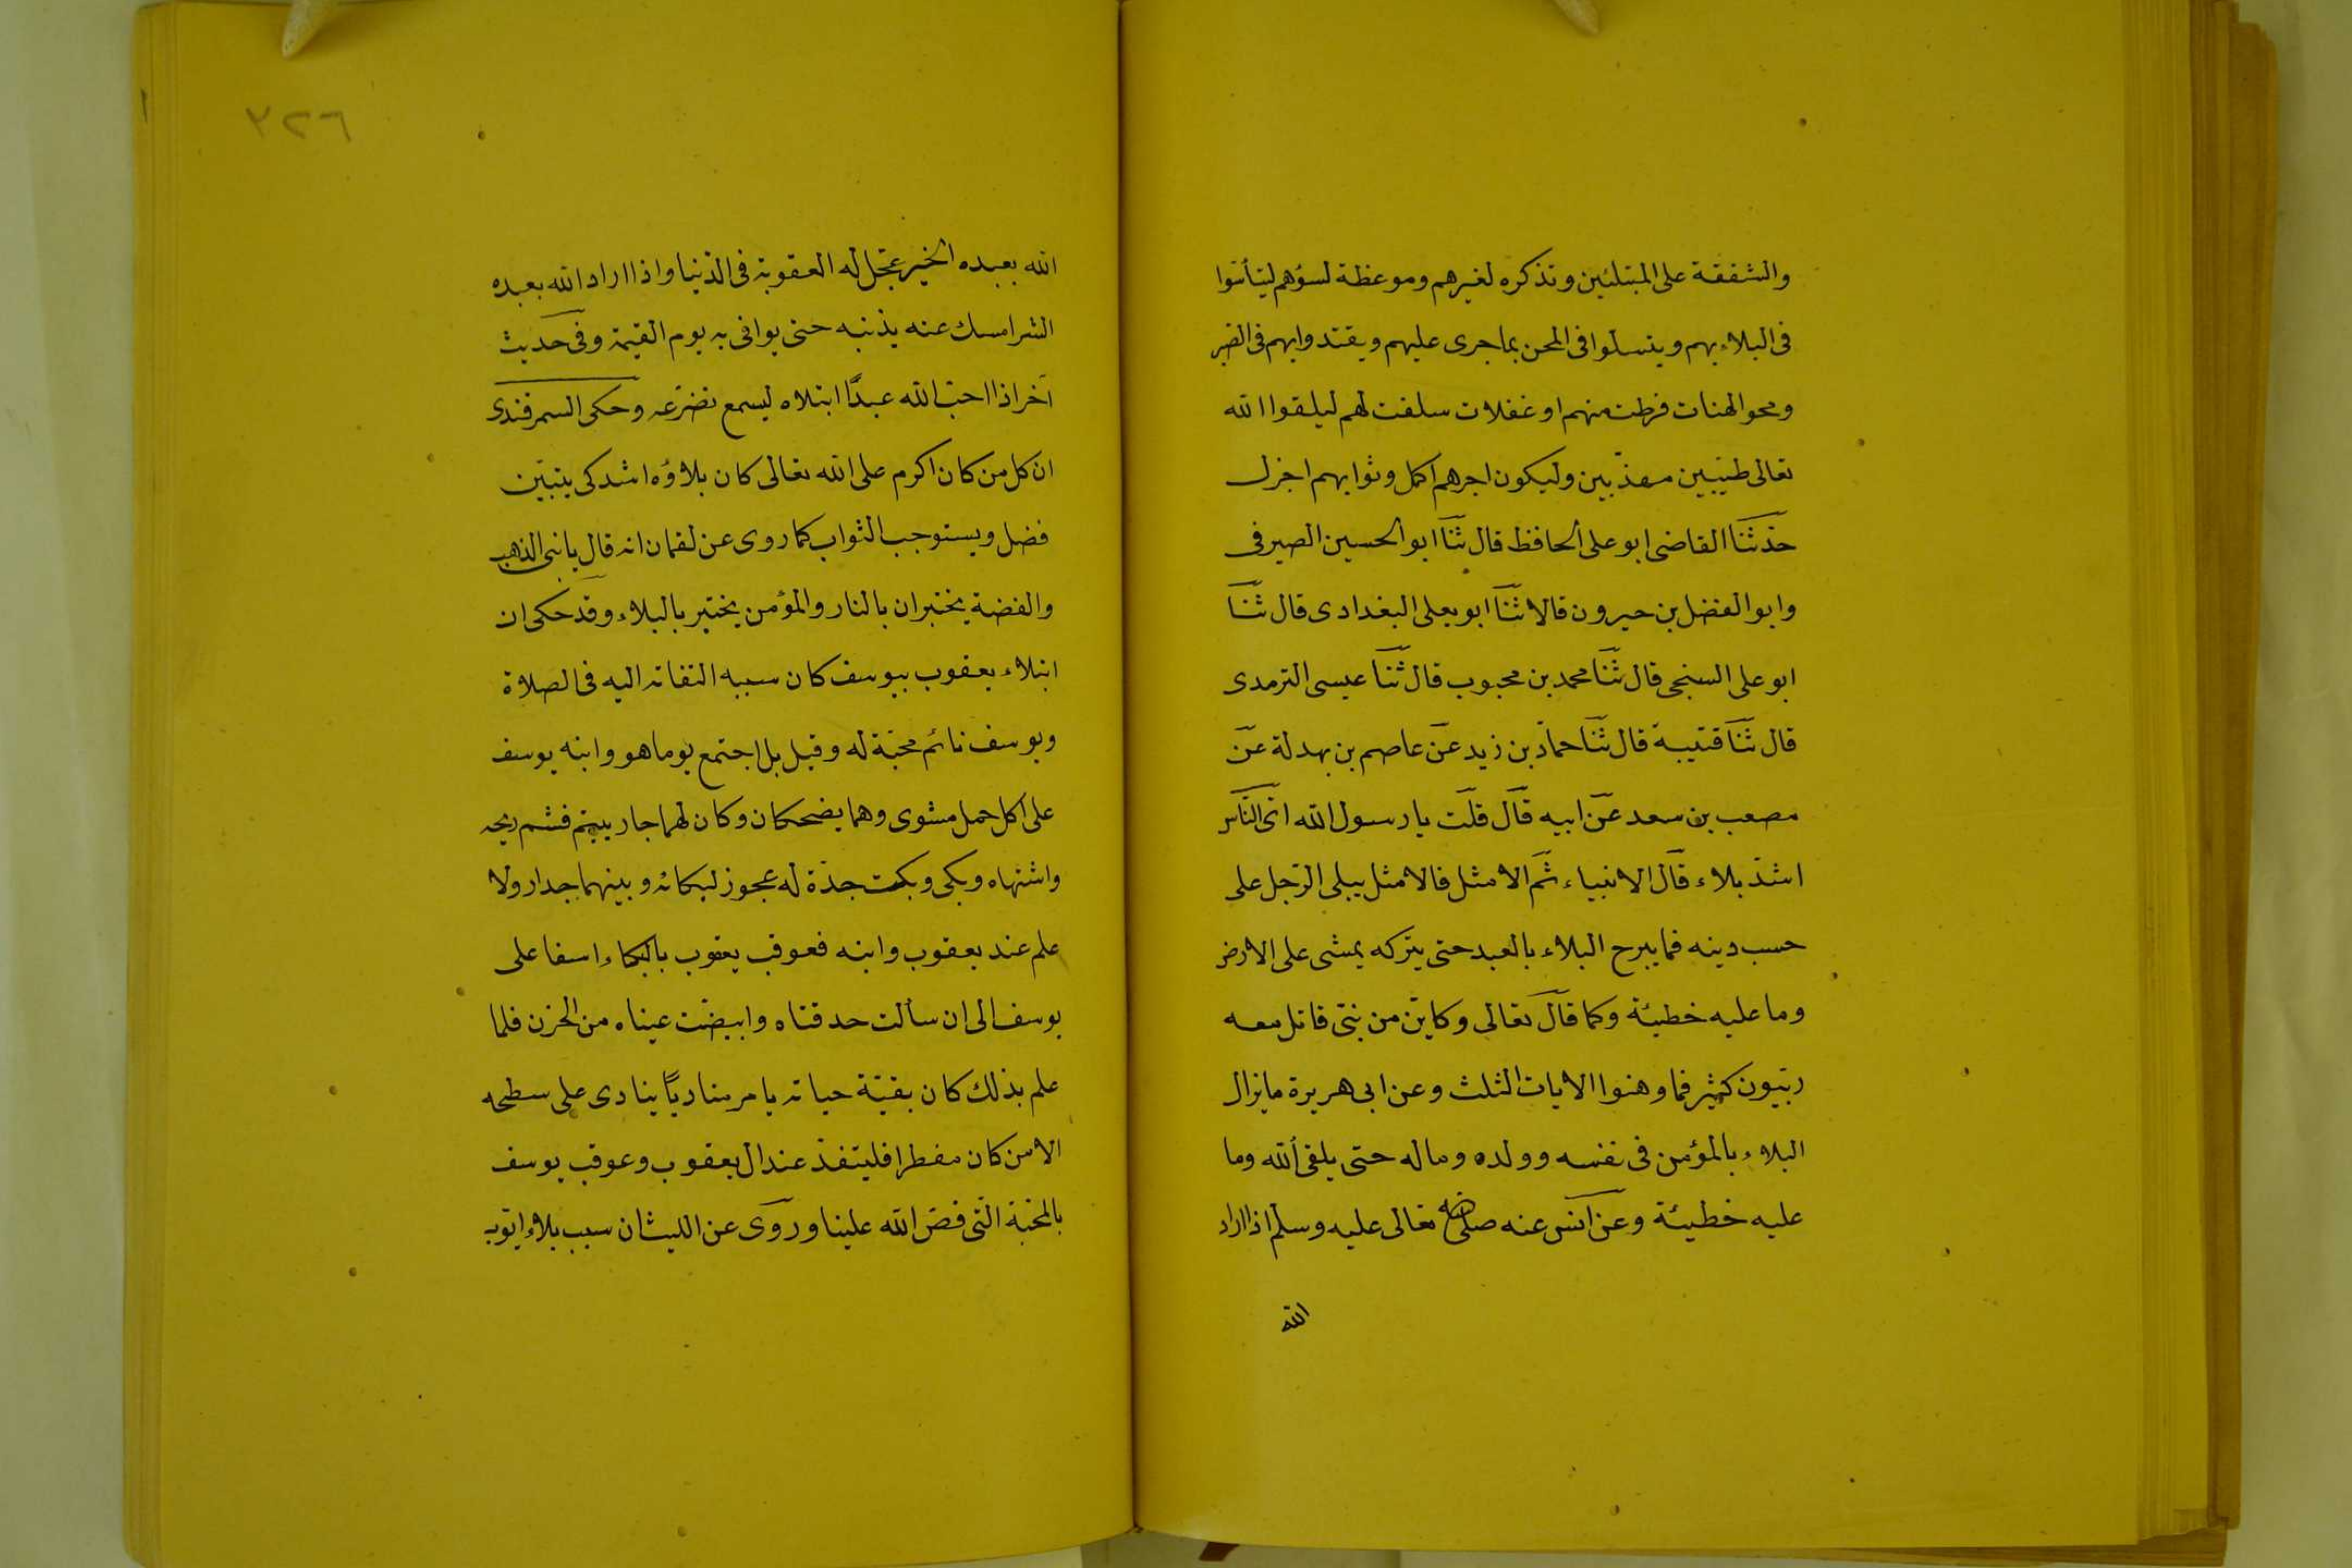 والشفقة على المبتلئين وتذكره لغيرهم وموعظة لسؤهم ليتأسوا
فى البلاء بهم ويتسلوا فى المحن بما جرى عليهم ويقتدوا بهم فى الصبر
ومحو الهنات فرطت منهم او غفلات سلفت لهم ليلقوا الله
تعالى طيبين مهذبين وليكون اجرهم اكمل وثوابهم اجزل
حدثنا القاضى ابو على الحافظ قال ثنا ابو الحسين الصيرفى
وابو الفضل بن حيرون قالا ثنا ابو يعلى البغدادى قال ثنا
ابو على السنجى قال ثنا محمد بن محبوب قال ثنا عيسى الترمدى
قال ثنا قتيبة قال ثنا حماد بن زيد عن عاصم بن بهدلة عن
مصعب بن سعد عن ابيه قال قلت يا رسول الله اى الناس
اشد بلاء قال الانبياء ثم الامثل فالامثل يبلى الرجل على
حسب دينه فما يبرح البلاء بالعبد حتى يتركه يمشى على الارض
وما عليه خطيئة وكما قال تعالى وكاين من نبى قاتل معه
ربيون كثير فما وهنوا الايات الثلث وعن ابى هريرة ما يزال
البلاء بالمؤمن فى نفسه وولده وماله حتى يلقى الله وما
عليه خطيئة وعن انس عنه صلى الله تعالى عليه وسلم اذا اراد
الله
٣٢٦
الله بعبده الخير عجل له العقوبة فى الدنيا واذا اراد الله بعبده
الشر امسك عنه بذنبه حتى يوافى به يوم القيمة وفى حديث
آخر اذا احب الله عبدًا ابتلاه ليسمع تضرعه وحكى السمرقندى
ان كل من كان اكرم على الله تعالى كان بلاؤه اشد كى يتبين
فضل ويستوجب الثواب كما روى عن لقمان انه قال يا بنى الذهب
والفضة يختبران بالنار والمؤمن يختبر بالبلاء وقد حكى ان
ابتلاء يعقوب بيوسف كان سببه التفاته اليه فى الصلاة
ويوسف نائم محبة له وقيل بل اجتمع يوما هو وابنه يوسف
على اكل حمل مشوى وهما يضحكان وكان لهما جار يتيم فشم ريحه
واشتهاه وبكى وبكت جدة له عجوز لبكائه وبينهما جدار ولا
علم عند يعقوب وابنه فعوقب يعقوب بالبكاء اسفا على
يوسف الى ان سالت حدقتاه وابيضت عيناه من الحزن فلما
علم بذلك كان بقية حياته يامر مناديًا ينادى على سطحه
الا من كان مفطرا فليتغد عند ال يعقوب وعوقب يوسف
بالمحنة التى قص الله علينا وروى عن الليث ان سبب بلاء ايوب